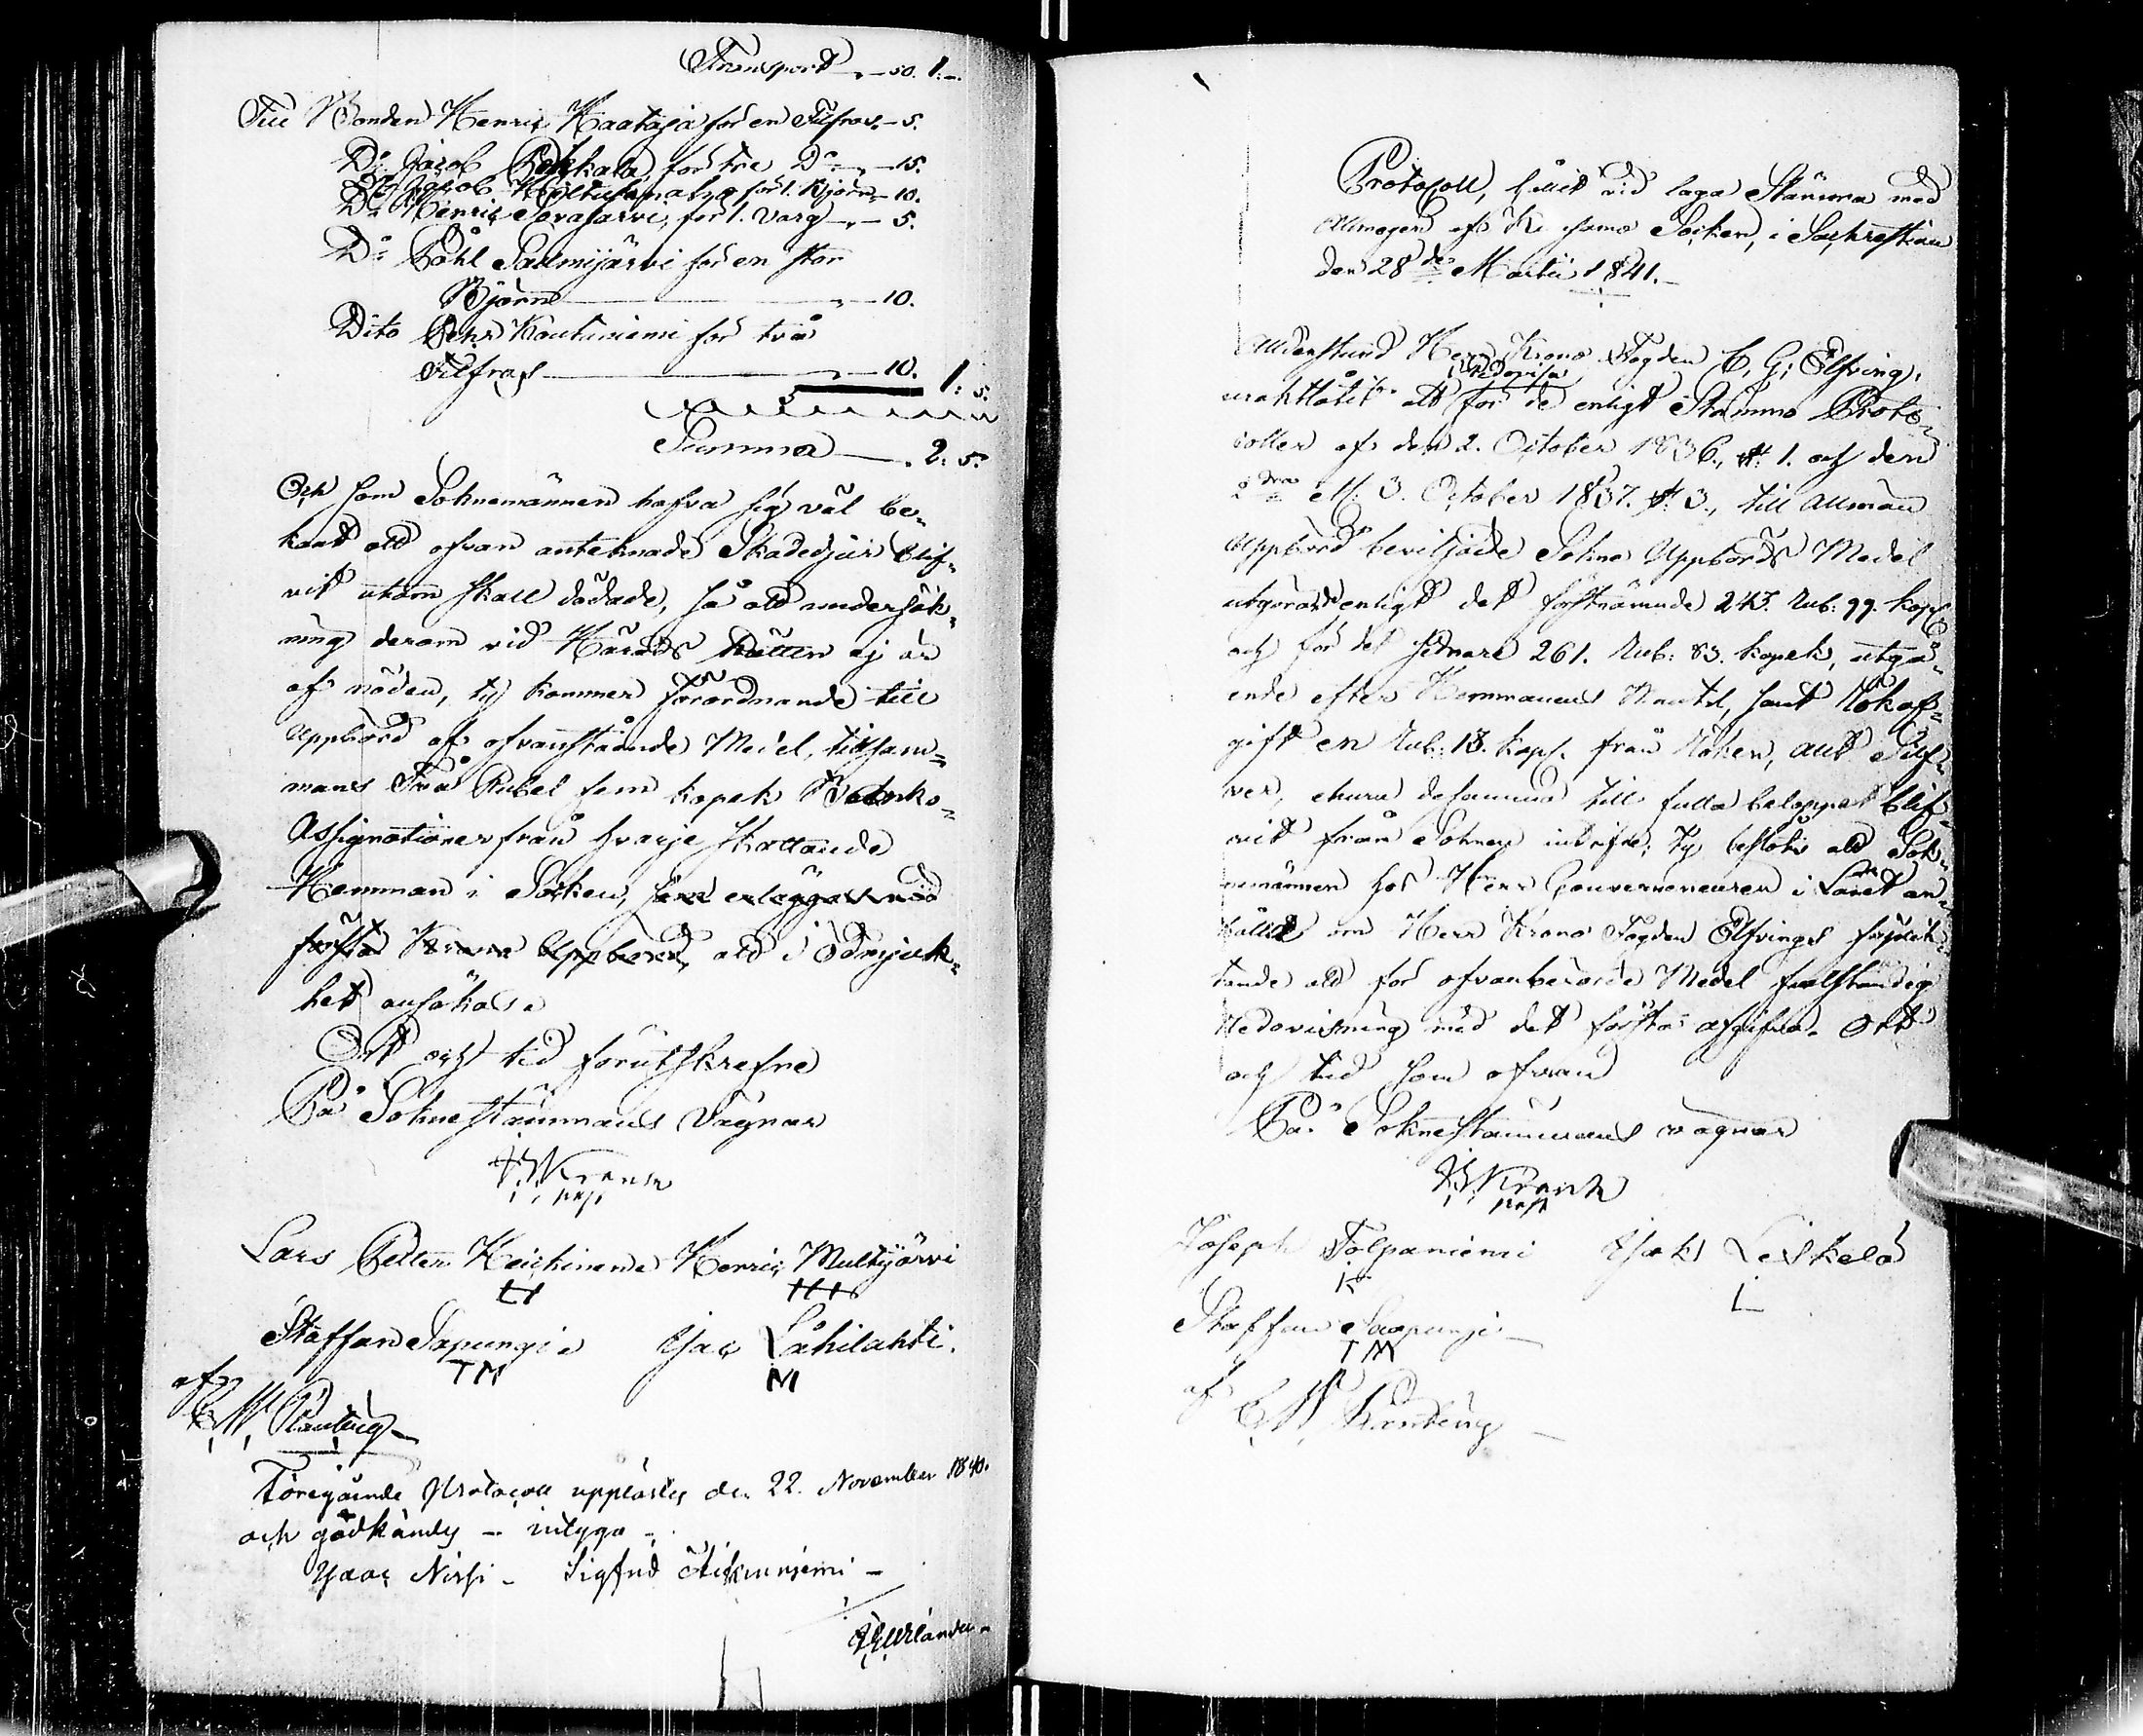 Transport „—50. 1:—.
Till Bonden Henric Kaataja för en Filfras. — 5.
D:o Jacob Pekkala, för tre D:o „ — 15.
D:o Jacob för 1. Björn — 10.
D:o Henric Sovajärvi, för 1. Varg „ — 5.
D:o Påhl Salmijärvi för en stor
Björn „ — 10.
Dito Pehr Koutiniemi för två
Filfras „ — 10. 1: 5.
Summa — „ 2: 5.
Och som Soknemännen hafva sig väl be-
kant att ofvan anteknade Skadedjur blif-
vit utom skall dödade, så att undersök-
ning derom vid Härads Rätten ej är
af nöden, ty kommer förordnande till
Uppbörd af ofvanstående Medel, tillsam-
mans Två Rubel fem kopek Banko-
Assignationer från hvarje skattande
Hemman i Socken, som erlägges med
första Krono Uppbörd, att i ödmjuk-
het ansökas.
Ort och tid förutskrefne
På Soknestämmans Vägnar
J. W. Krank
past
Lars Petter Heickinen Henric Multijärvi
Staffan Sapungi Isac Låhilahti.
TM M
af
C. W. Planting
Föregående Protocoll upplästes den 22. November 1840.
och godkändes — intyga —
Isaac Nissi — Sigfrid
Protocoll, hållit vid laga Stämma med
Allmogen af Kusamo Socken, i Sackrestian
den 28de Martii 1841.—
Alldenstund Herr Krono Fogden C. G. Elfving,
redovisa
uraktlåtit att för de enligt Stämmo Proto-
coller af den 2. October 1836., §: 1. och den
2dra & 3. October 1837. §: 3., till allmän
Uppbörd beviljade Sokne Uppbörds Medel
utgörande enligt det förstnämnde 243. Rub: 99. kop.
och för det sednare 261. Rub: 83. kopek, utgå-
ende efter Hemmanens Mantal, samt Rökaf-
gift en Rub: 18. kop. från Röken, allt Silf-
ver, ehuru desamma till fulla beloppet blif-
vit från Soknen indrifne; ty beslöts att Sok-
nemännen hos Herr Gouverneuren i Länet an-
hålla om Herr Krono Fogden Elfvings förplik-
tande att för ofvanberörde Medel fullständig
Redovisning med det första afgifva. Ort
och tid som ofvan
På Soknestämmans vägnar
J. W. Krank
past
Joseph Tolpaniemi Isak Leskelä
L
Staffan Saapungi
TM
af C. W. Planting